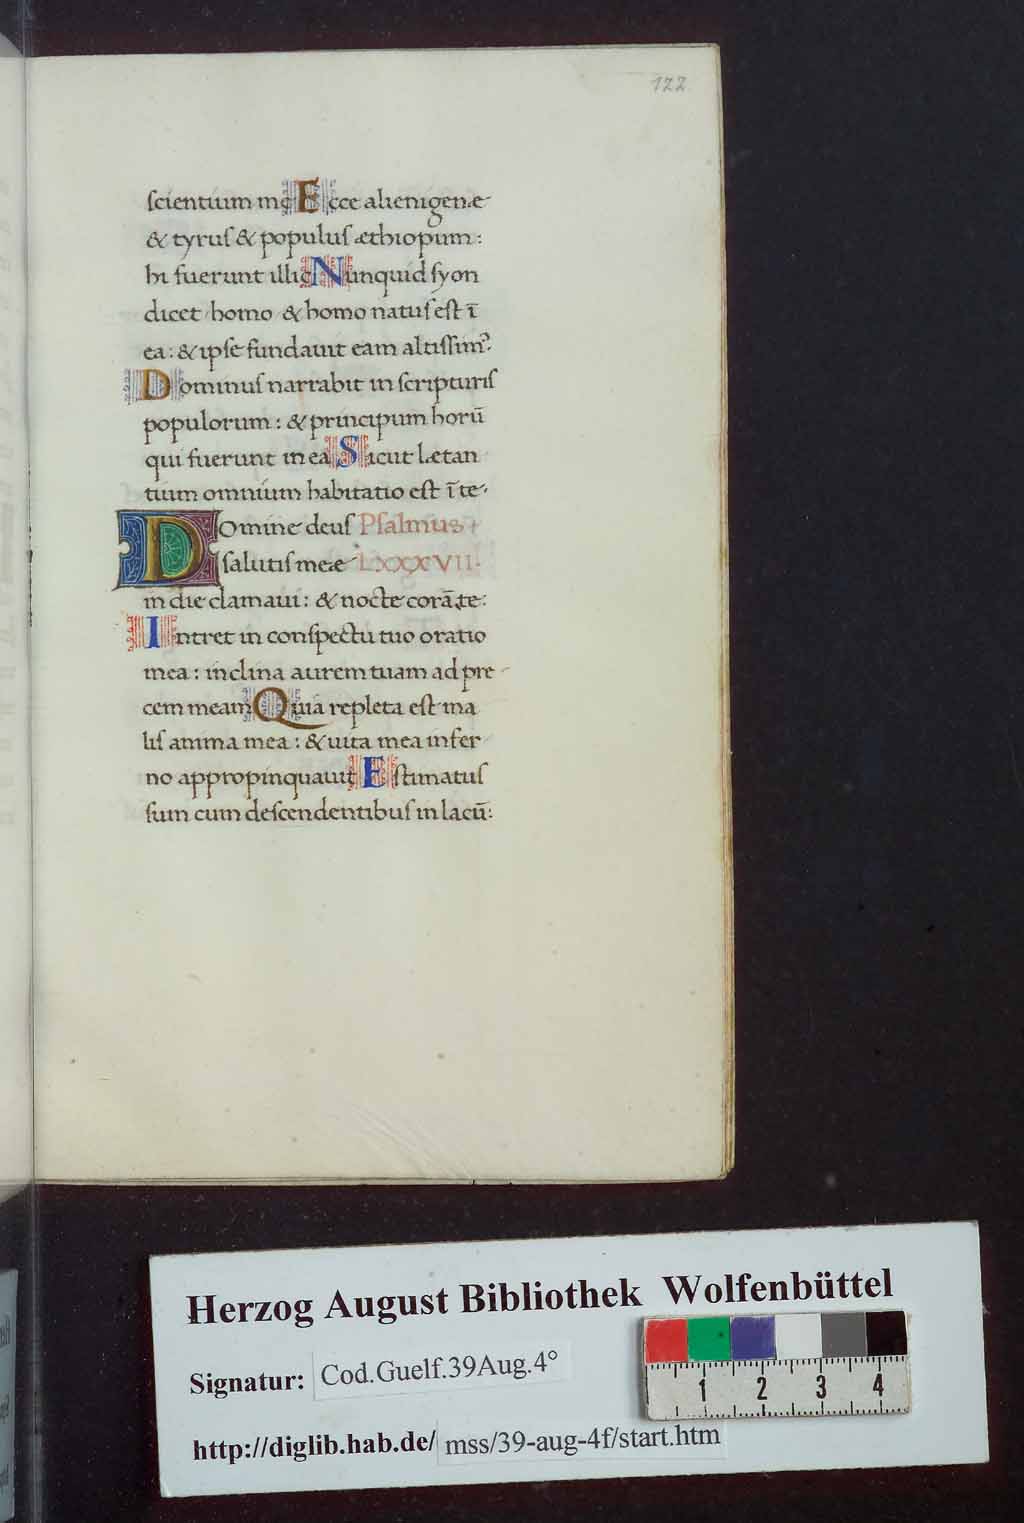 122
scientium me Ecce alienigenæ
& tyrus & populus æthiopum:
hi fuerunt illic Nunquid syon
dicet homo & homo natus est ī
ea: & ipse fundauit eam altissimꝰ.
Dominus narrabit in scripturis
populorum: & principum horū
qui fuerunt in ea Sicut lætan
tium omnium habitatio est ī te.
Domine deus Psalmus
salutis meæ LXXXVII.
in die clamaui: & nocte corā te.
Intret in conspectu tuo oratio
mea: inclina aurem tuam ad pre
cem meam Quia repleta est ma
lis anima mea: & uita mea infer
no appropinquauit Estimatus
sum cum descendentibus in lacū:
Herzog August Bibliothek Wolfenbüttel
Signatur: Cod.Guelf.39Aug.4°
1 2 3 4
http://diglib.hab.de/ mss/39-aug-4f/start.htm